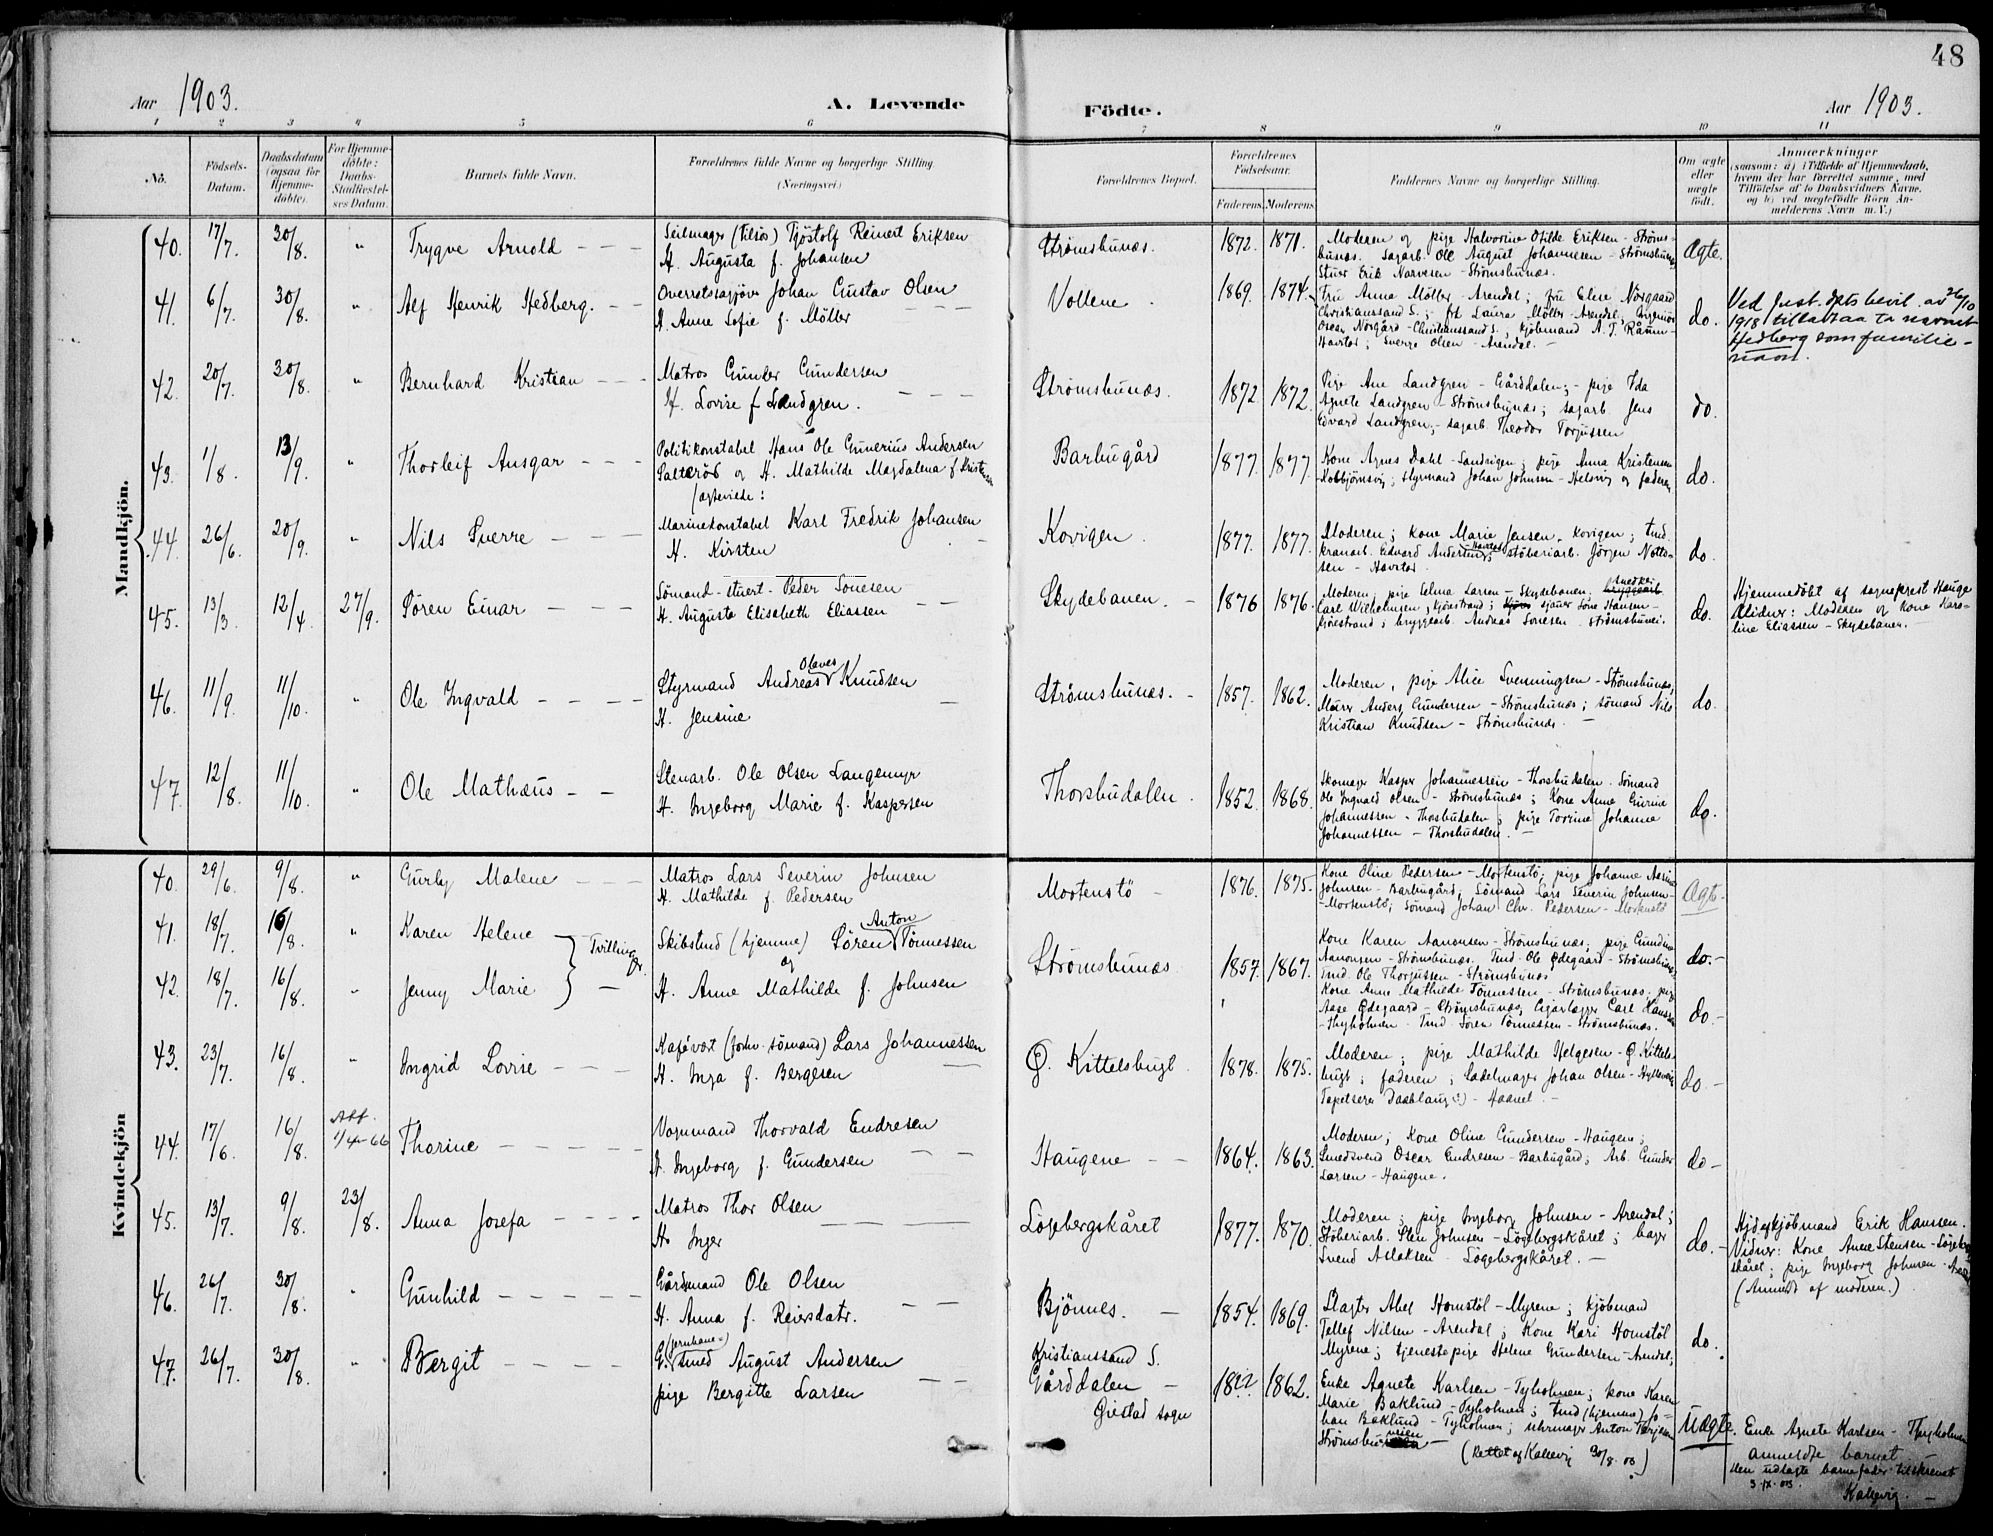 48
Aar 1903.
A. Levende
Födte.
Aar 1903.
1 2 3 4 5 6 7 8 9 10 11
No.
Födsels-
Datum.
Daabsdatum
(ogsaa for
Hjemme-
døbte).
For Hjemme-
døbte:
Daabs-
Stadfæstel-
ses Datum.
Barnets fulde Navn.
Forældrenes fulde Navne og borgerlige Stilling
(Næringsvei.)
Forældrenes Bopæl.
Forældrenes
Födselsaar.
Faderens. Moderens.
Faddernes Navne og borgerlige Stilling.
Om ægte
eller
uægte
født.
Anmærkninger
(saasom: a) i Tilfælde af Hjemmedaab,
hvem der har forrettet samme, med
Tilføielse af to Daabsvidners Navne.
og b) ved uægtefödte Börn An-
melderens Navn m. V.)
Mandkjön.
40. 17/7. 30/8. " Trygve Arnold
Seilmager (tilsøs) Tjöstolf Reinert Eriksen
H. Augusta f. Johansen
Strømsbunæs. 1872. 1871.
Moderen og pige Halvorine Otilde Eriksen - Ströms-
bunæs. Sagarb. Ole August Johannesen - Strømsbunæs
Stuer Erik Narvesen - Strømsbunæs.
Ægte.
41. 6/7. 30/8. " Alf Henrik Hedberg.
Overretssagförer Johan Gustav Olsen
H. Anne Sofie f. Möller
Vollene. 1869. 1874.
Fru Anna Möller - Arendal; fru Elise Norgaard
Christianssand S.; frk Laura Möller - Arendal; Ingeniör
Oscar Norgård - Christianssand S.; kjöbmand A. T. Råum-
Havstad; Sverre Olsen - Arendal.
do.
Ved Just. dpts bevil. av 26/10
1918 tillatsaa ta navnet
Hedberg som familie-
navn.
42. 20/7. 30/8. " Bernhard Kristian
Matros Gunder Gundersen
H. Lovise f Landgren.
Strømsbunæs. 1872. 1872.
Pige Ane Landgren - Gårddalen; - pige Ida
Agnete Landgren - Strømsbunæs; sagarb. Jens
Edvard Landgren; - sagarb. Theodor Torjussen
do.
43. 1/8. 13/9. " Thorleif Ausgar
Politikonstabel Hans Ole Gunerius Andersen
Salterød og H. Mathilde Magdalena f Kristensen
Barbugård 1877. 1877.
Kone Agnes Dahl - Sandvigen; pige Anna Kristensen
Kolbjørnsvig; styrmand Johan Johnsen - Helsvig og faderen
do.
44. 26/6. 20/9. " Nils Sverre
Marinekonstabel Karl Fredrik Johansen
H. Kirsten
Kovigen. 1877. 1877.
Moderen; kone Marie Jensen, Kovigen; tmd.
kranarb. Edvard Andersen, Havstad støberiarb. Jörgen Notto-
sen - Havstad
do.
45. 13/3. 12/4. 27/9. Sören Einar
Sömand - stuert - Peder Sonesen
H. Auguste Elisabeth Eliassen
Skydebanen. 1876 1876.
Moderen, pige Selma Larsen - Skydebanen; snedker
Carl Wilhelmsen, Kjöestrand; sjauer Sone Hansen -
Kjöestrand; bryggearb. Andreas Sonesen. Strømsbunei.
do.
Hjemmedöbt af sogneprest Hauge
Vidner: Moderen og kone Karo-
line Eliassen - Skydebanen.
46. 11/9. 11/10. " Ole Ingvald
Styrmand Andreas Olaves Knudsen
H. Jensine
Strømsbunæs. 1857. 1862.
Moderen, pige Alice Svenningsen - Strømsbunæs,
Murer Anders Gundersen - Strømsbunæs; sömand Nils
Kristian Knudsen - Strömsbunæs.
do.
47. 12/8. 11/10. " Ole Mathæus
Stenarb. Ole Olsen Langemyr
H. Ingeborg Marie f. Kaspersen
Thorsbudalen. 1852. 1868.
Skomager Kasper Johannessen - Thorsbudalen. Sömand
Ole Ingvald Olsen - Strømsbunæs; Kone Anne Gurine
Johannessen - Thorsbudalen; pige Torrine Johanne
Johannessen - Thorsbudalen.
do.
Kvindekjön
40. 29/6. 9/8. " Gurly Malene
Matros Lars Severin Johnsen
H. Mathilde f. Pedersen
Mortenstö 1876. 1875.
Kone Oline Pedersen - Mortenstö; pige Johanne Aasine
Johnsen - Barbugård; Sömand Lars Severin Johnsen-
-Mortenstö; Sömand Johan Chr. Pedersen - Mortenstö
Ægte.
41. 18/7. 16/8. " Karen Helene
Tvillinger.
Skibstmd (hjemme) Sören Anton Tönnessen
og
Strømsbunæs 1857. 1867.
Kone Karen Aanonsen - Strømsbunæs; pige Gundine
Aanonsen - Strømsbunæs. Tmd. Ole Ødegaard - Strømsbunæs
Tmd. Ole Thorjussen - Strømsbunæs
do.
42. 18/7. 16/8. " Jenny Marie
H. Anne Mathilde f. Johnsen
Kone Anne Mathilde Tönnessen - Strømsbunæs, pige
Aase Ødegaard - Strømsbunæs, Cigarlager Carl Hansen
- Thyholmen. Tmd. Soren Tönnessen - Strömsbunæs.
do.
43. 23/7. 16/8. " Ingrid Lovise
Kafévært (forhv. sömand) Lars Johannessen
H. Inga f. Bergesen
Ø. Kittelsbugt. 1878. 1875.
Moderen; pige Mathilde Helgesen - Ø. Kittels-
bugt; faderen; Sadelmager Johan Olsen - Hylleveien
do.
44. 17/6. 16/8. Att. 1/4-66 Thorine
Vognmand Thorvald Endresen
H. Ingeborg f. Gundersen
Haugene 1864. 1863.
Moderen; Kone Oline Gundersen - Haugene;
Smedsvend Oscar Endresen - Barbugård; Arb. Gunder
Larsen - Haugene.
do
45. 13/7. 9/8. 23/8. Anna Josefa
Matros Thor Olsen
H. Inger
Løgebergskåret 1877. 1870.
Moderen; pige Ingeborg Johnsen - Arendal;
Støberiarb. Sten Johnsen - Løgebergskåret; bager
Svend Aslaksen - Løgebergskåret.
do.
Hjd. af kjöbmand Erik Hanssen.
Vidner: Kone Anne Stensen - Løgeberg-
skåret; pige Ingeborg Johnsen - Arendal
(Anmeldt af moderen.)
46. 26/7. 30/8. " Gunhild
Gårdmand Ole Olsen
H. Anna f. Reiersdatr.
Bjönnes. 1854. 1869.
Slagter Abel Homstöl - Myrene; kjöbmand
Tellef Nilsen - Arendal; Kone Kari Homstöl
Myrene; tjenestepige Helene Gundersen - Arendal;
do.
47. 26/7. 30/8. " Bergit
G. (jernbane-) smed August Andersen
pige Bergitte Larsen
Kristianssand S.
Gårddalen
Øiestad sogn
1862.
Enke Agnete Karlsen - Tyholmen; kone Karen
Marie Baklund - Tyholmen; tmd (hjemme) Jo-
han Baklund - Tyholmen; uhrmager Anton Terjesen
Strømsbuveien
(Rettet af Kallevig 30/8. 03)
Uægte.
Enke Agnete Karlsen - Thyholmen
anmeldte barnet
Den udlagte barnefader tilskrevet
3. IX. 03.
Kallevig.